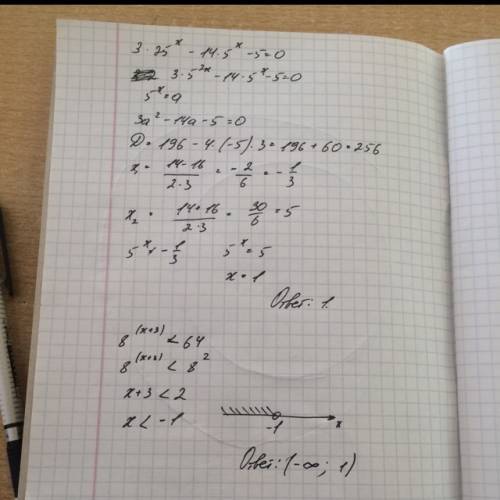 3 · 25^x - 14 · 5^x - 5 = 0
3 · 5^{2x} - 14 · 5^x - 5 = 0
5^x = a
3a² - 14a - 5 = 0
D = 196 - 4 · (-5) · 3 = 196 + 60 = 256
x₁ = \frac{14-16}{2·3} = -\frac{2}{6} = -\frac{1}{3}
x₂ = \frac{14+16}{2·3} = \frac{30}{6} = 5
5^x ≠ -\frac{1}{3} 5^x = 5
x = 1
Ответ: 1.
8^{(x+3)} < 64
8^{(x+3)} < 8²
x+3 < 2
x < -1
-1 x
Ответ: (-∞; 1)